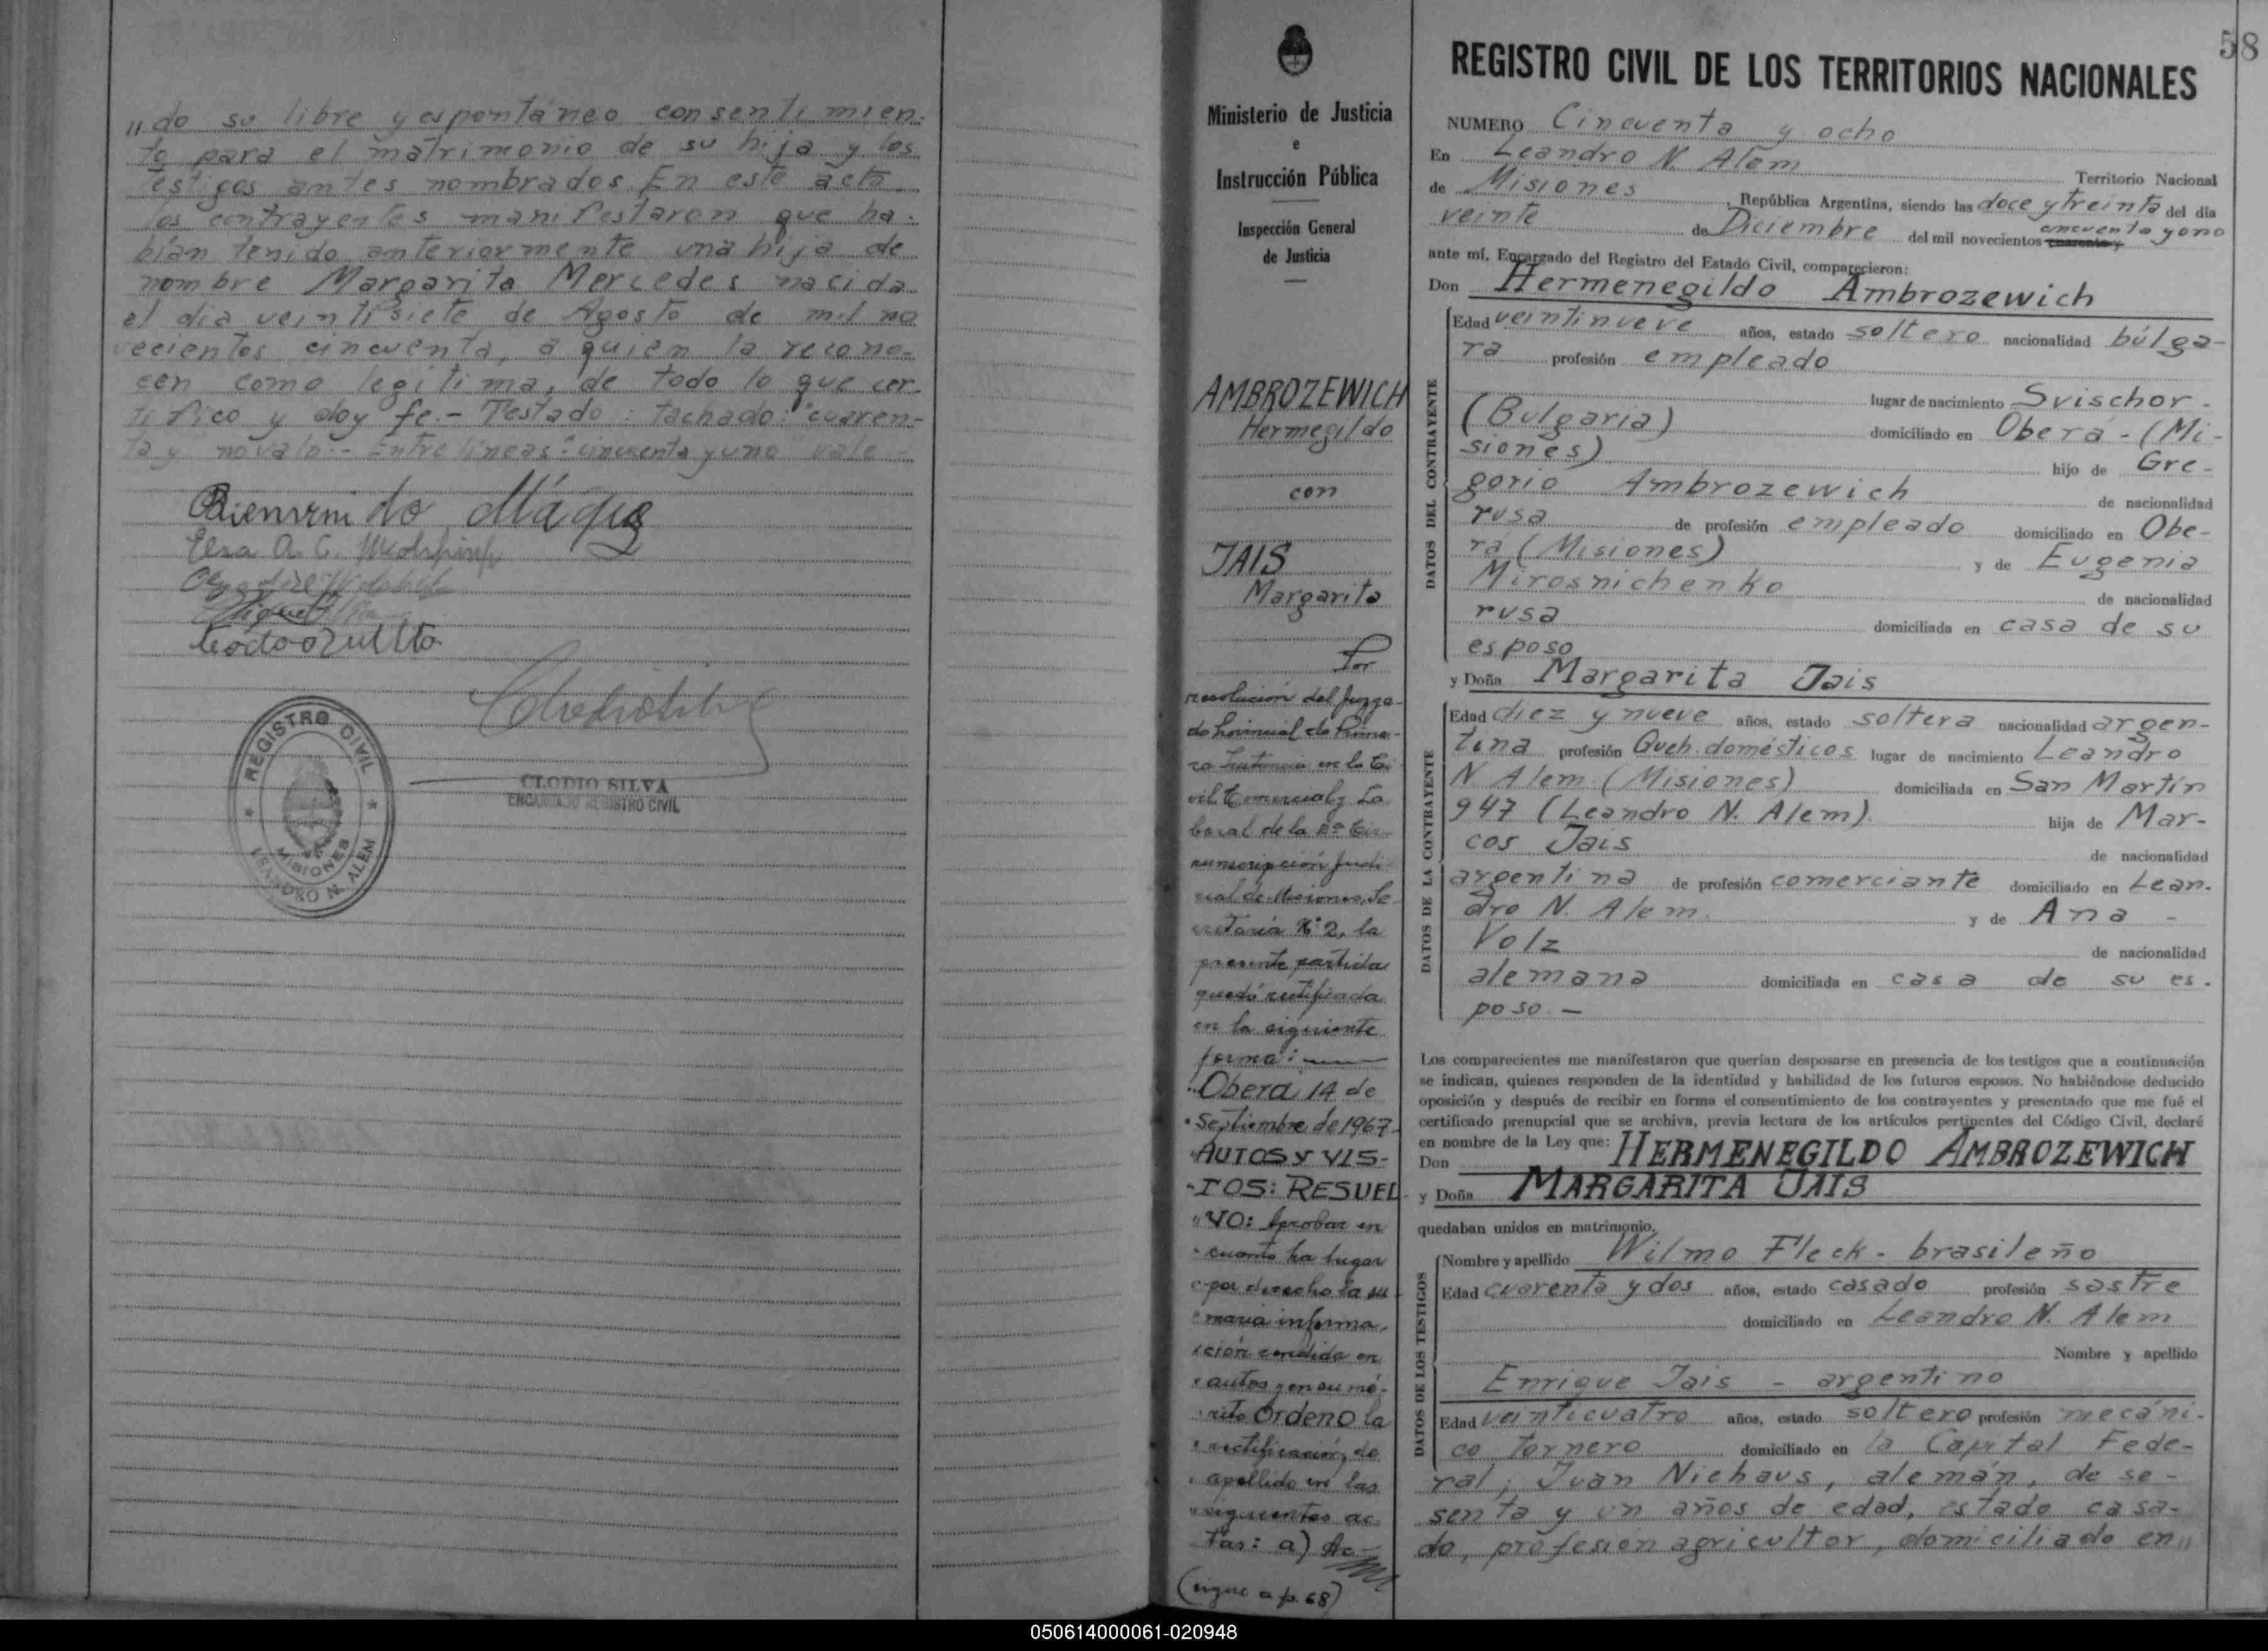 " do su libre y espontáneo consentimien-
to para el matrimonio de su hija y los
testigos antes nombrados. En este acto
los contrayentes manifestaron que ha-
bían tenido anteriormente una hija de
nombre Margarita Mercedes nacida
el día veintisiete de Agosto de mil no
vecientos cincuenta, a quien la recono-
cen como legítima, de todo lo que cer-
tifico y doy fe.- Testado: tachado: "cuaren-
ta y" no vale.- Entre líneas: "cincuenta y uno" vale -
Bienvenido
Elsa A. C.
REGISTRO CIVIL
MISIONES
LEANDRO N. ALEM
CLODIO SILVA
ENCARGADO REGISTRO CIVIL
Ministerio de Justicia
e
Instrucción Pública
Inspección General
de Justicia
AMBROZEWICH
Hermegildo
con
JAIS
Margarita
Por
resolución del Juzga-
do Provincial de Prime-
ra Instancia en lo Ci
vil Comercial y La
boral de la 2ª Cir-
cunscripción Judi-
cial de Misiones, Se
cretaría Nº 2, la
presente partida
quedó rectificada
en la siguiente
forma:
"Oberá 14 de
"Septiembre de 1967-
"AUTOS Y VIS-
"TOS: RESUEL-
"VO: Aprobar en
"cuanto ha lugar
"por derecho la su
"maria informa-
"ción rendida en
"autos y en su mé-
"rito Ordeno la
"rectificación de
"apellido en las
"siguientes ac
tas: a) Ac-
(sigue a p. 68)
58
REGISTRO CIVIL DE LOS TERRITORIOS NACIONALES
NUMERO Cincuenta y ocho
En Leandro N. Alem Territorio Nacional
de Misiones, República Argentina, siendo las doce y treinta del día
veinte de Diciembre del mil novecientos cuarenta y cincuenta y uno
ante mí, Encargado del Registro del Estado Civil, comparecieron:
Don Hermenegildo Ambrozewich
DATOS DEL CONTRAYENTE
Edad veintinueve años, estado soltero nacionalidad búlga-
ra profesión empleado
lugar de nacimiento Svischor-
(Bulgaria) domiciliado en Oberá - (Mi-
siones) hijo de Gre-
gorio Ambrozewich de nacionalidad
rusa de profesión empleado domiciliado en Obe-
rá (Misiones) y de Eugenia
Mirosnichenko de nacionalidad
rusa domiciliada en casa de su
esposo
y Doña Margarita Jais
DATOS DE LA CONTRAYENTE
Edad diez y nueve años, estado soltera nacionalidad argen-
tina profesión Queh. domésticos lugar de nacimiento Leandro
N Alem (Misiones) domiciliada en San Martín
947 (Leandro N. Alem) hija de Mar-
cos Jais de nacionalidad
argentina de profesión comerciante domiciliado en Lean-
dro N. Alem. y de Ana -
Volz de nacionalidad
alemana domiciliada en casa de su es-
poso.-
Los comparecientes me manifestaron que querían desposarse en presencia de los testigos que a continuación
se indican, quienes responden de la identidad y habilidad de los futuros esposos. No habiéndose deducido
oposición y después de recibir en forma el consentimiento de los contrayentes y presentado que me fué el
certificado prenupcial que se archiva, previa lectura de los artículos pertinentes del Código Civil, declaré
en nombre de la Ley que:
Don HERMENEGILDO AMBROZEWICH
y Doña MARGARITA JAIS
quedaban unidos en matrimonio.
DATOS DE LOS TESTIGOS
Nombre y apellido Wilmo Fleck - brasileño
Edad cuarenta y dos años, estado casado profesión sastre
domiciliado en Leandro N. Alem
Nombre y apellido
Enrique Jais - argentino
Edad veinticuatro años, estado soltero profesión mecáni-
co tornero domiciliado en la Capital Fede-
ral; Juan Niehaus, alemán, de se-
senta y un años de edad, estado casa-
do, profesión agricultor, domiciliado en "
050614000061-020948